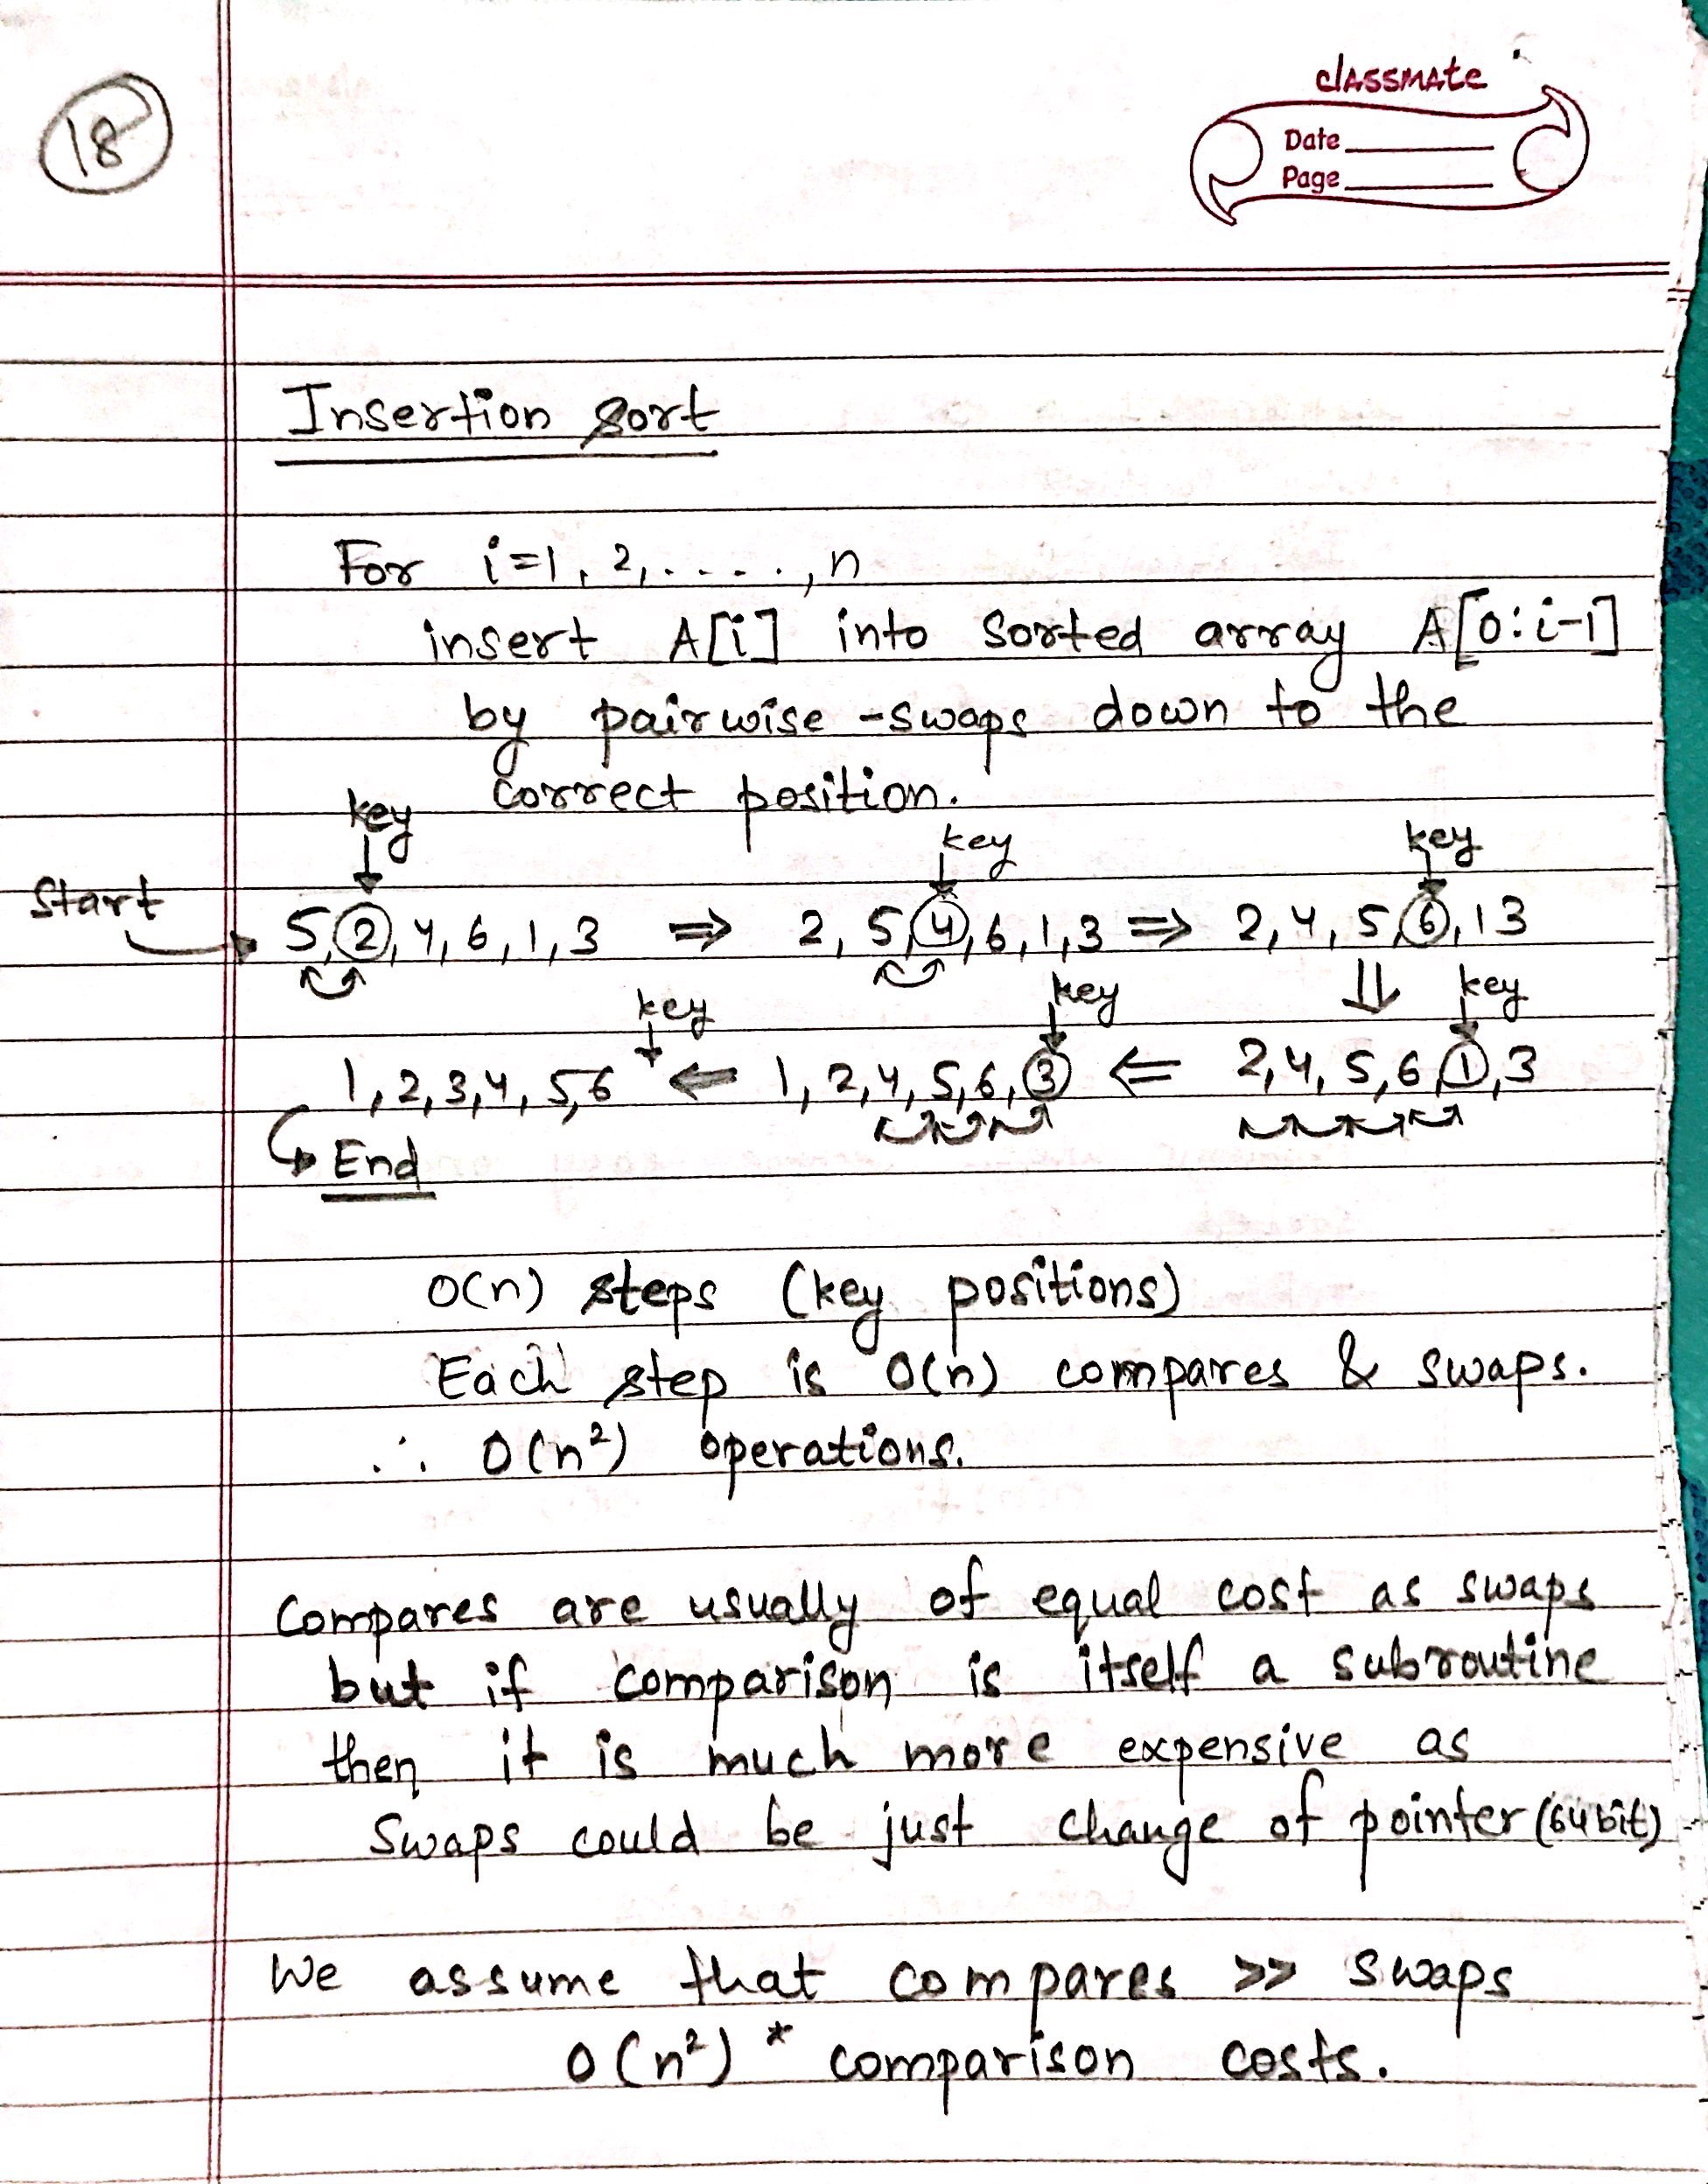 18
classmate
Date
Page
Insertion Sort
For i=1, 2, ....., n
insert A[i] into sorted array A[0:i-1]
by pairwise -swaps down to the
correct position.
key key key
Start
5, 2, 4, 6, 1, 3 ⇒ 2, 5, 4, 6, 1, 3 ⇒ 2, 4, 5, 6, 1 3
⇓
key key key
1, 2, 3, 4, 5, 6 ⇐ 1, 2, 4, 5, 6, 3 ⇐ 2, 4, 5, 6, 1, 3
End
O(n) steps (key positions)
Each step is O(n) compares & swaps.
∴ O(n²) operations.
Compares are usually of equal cost as swaps
but if comparison is itself a subroutine
then it is much more expensive as
Swaps could be just change of pointer (64 bit)
We assume that compares >> swaps
O(n²) * comparison costs.